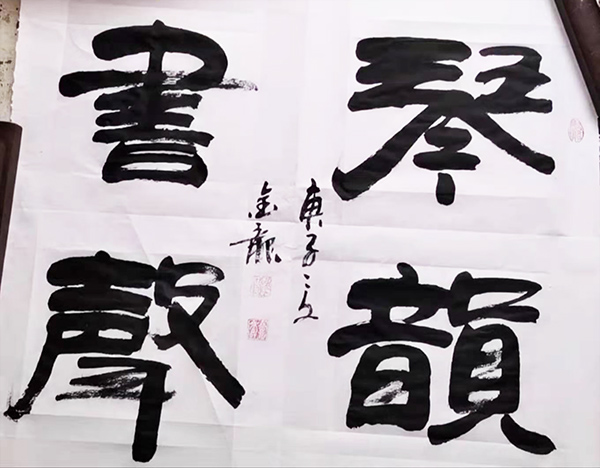 琴韻
書聲
庚子之夏
金龍